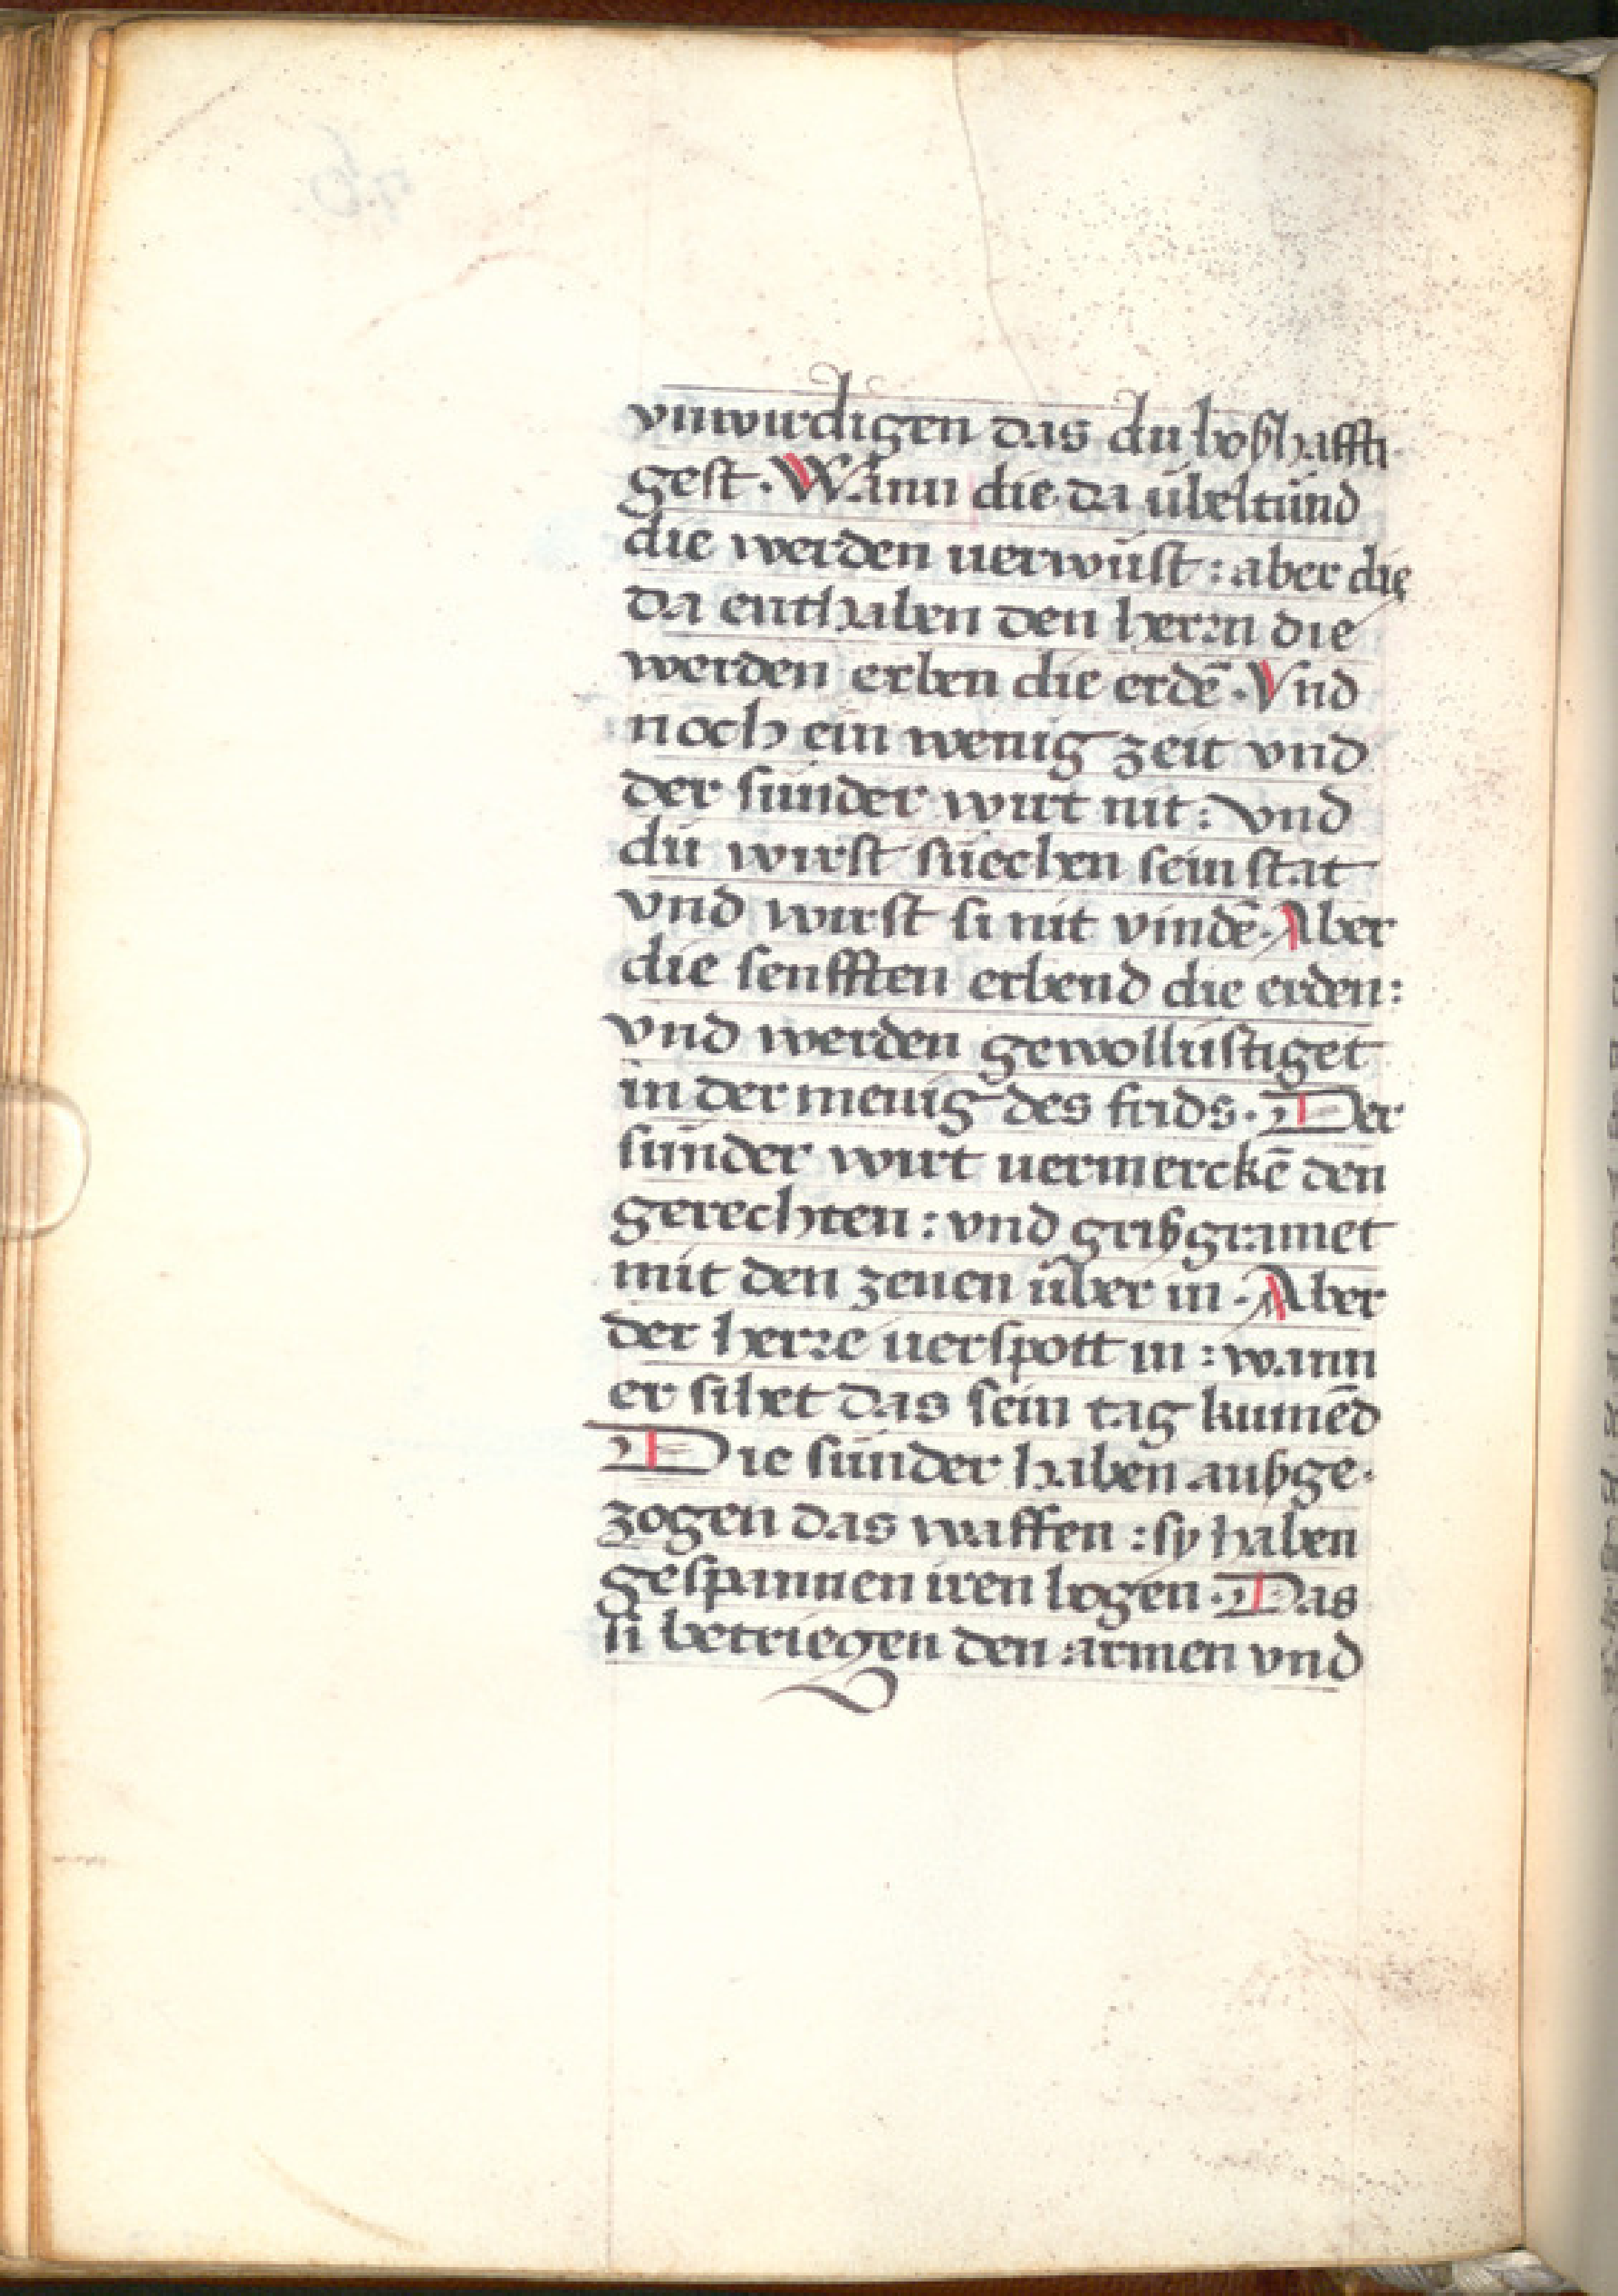 vnwirdigen das du boßhaffti
gest. Wann die da übeltund
die werden uerwüst: aber die
da enthalen den herrn die
werden erben die erdē. Vnd
noch ein wenig zeit vnd
der sünder wirt nit: vnd
du wirst süechen sein stat
vnd wirst si nit vindē. Aber
die senfften erbend die erden:
vnd werden gewollüstiget
in der menig des frids. Der
sünder wirt uermerckē den
gerechten: vnd grißgramet
mit den zenen über in. Aber
der herre uerspott in: wann
er sihet das sein tag kumēd
Die sünder haben außge-
zogen das waffen: sy haben
gespannen iren bogen. Das
si betriegen den armen vnd